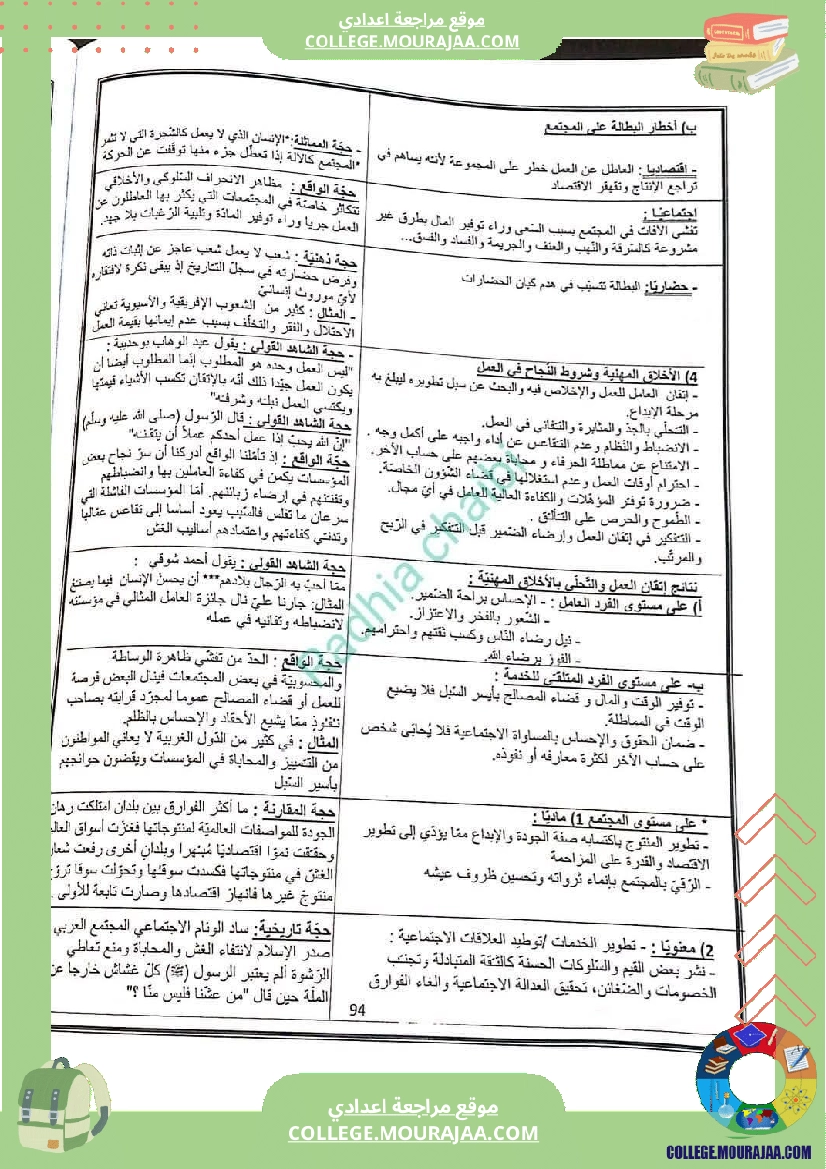 موقع مراجعة اعدادي
COLLEGE.MOURAJAA.COM
ب) أخطار البطالة على المجتمع
- اقتصاديا : العاطل عن العمل خطر على المجموعة لأنه يساهم في
تراجع الإنتاج وتقهقر الاقتصاد
- حجّة المماثلة: *الإنسان الذي لا يعمل كالشجرة التي لا تثمر
*المجتمع كالآلة إذا تعطّل جزء منها توقّفت عن الحركة
إجتماعيّا :
تفشّي الآفات في المجتمع بسبب السّعي وراء توفير المال بطرق غير
مشروعة كالسّرقة والنّهب والعنف والجريمة والفساد والفسق...
حجّة الواقع : مظاهر الانحراف السّلوكي والأخلاقي
تتكاثر خاصّة في المجتمعات التي يكثر بها العاطلون عن
العمل جريا وراء توفير المادّة وتلبية الرّغبات بلا جهد.
- حضاريّا: البطالة تتسبّب في هدم كيان الحضارات
حجة ذهنيّة : شعب لا يعمل شعب عاجز عن إثبات ذاته
وفرض حضارته في سجلّ التّاريخ إذ يبقى نكرة لافتقاره
لأيّ موروث إنسانيّ
- المثال : كثير من الشعوب الإفريقية والآسيوية تعاني
الاحتلال والفقر والتخلّف بسبب عدم إيمانها بقيمة العمل
4) الأخلاق المهنية وشروط النّجاح في العمل
- إتقان العامل للعمل والإخلاص فيه والبحث عن سبل تطويره ليبلغ به
مرحلة الإبداع.
- التّحلّي بالجدّ والمثابرة والتّفاني في العمل.
- الانضباط والنّظام وعدم التّقاعس عن أداء واجبه على أكمل وجه .
- الامتناع عن مماطلة الحرفاء و محاباة بعضهم على حساب الآخر.
- احترام أوقات العمل وعدم استغلالها في قضاء الشّؤون الخاصّة.
- ضرورة توفّر المؤهّلات والكفاءة العالية للعامل في أيّ مجال.
- الطّموح والحرص على التّألّق .
- التّفكير في إتقان العمل وإرضاء الضّمير قبل التّفكير في الرّبح
والمرتّب.
- حجة الشاهد القولي : يقول عبد الوهاب بوحديبة :
"ليس العمل وحده هو المطلوب إنّما المطلوب أيضا أن
يكون العمل جيّدا ذلك أنّه بالإتقان تكسب الأشياء قيمتها
ويكتسي العمل نبله وشرفه"
حجة الشاهد القولي : قال الرّسول (صلى الله عليه وسلّم)
"إنّ الله يحبّ إذا عمل أحدكم عملا أن يتقنه"
حجّة الواقع : إذ تأمّلنا الواقع أدركنا أن سرّ نجاح بعض
المؤسسات يكمن في كفاءة العاملين بها وانضباطهم
وتفنّنهم في إرضاء زبائنهم. أمّا المؤسسات الفاشلة التي
سرعان ما تفلس فالسّبب يعود أساسا إلى تقاعس عمّالها
وتدنّي كفاءتهم واعتمادهم أساليب الغش
نتائج إتقان العمل والتّحلّي بالأخلاق المهنيّة :
أ) على مستوى الفرد العامل : - الإحساس براحة الضّمير.
- الشّعور بالفخر والاعتزاز.
- نيل رضاء النّاس وكسب ثقتهم واحترامهم.
- الفوز برضاء الله.
حجة الشاهد القولي : يقول أحمد شوقي :
ممّا أحبّ به الرّجال بلادهم*** أن يحسن الإنسان فيما يصنع
المثال: جارنا عليّ نال جائزة العامل المثالي في مؤسسته
لانضباطه وتفانيه في عمله
ب- على مستوى الفرد المتلقّي للخدمة :
- توفير الوقت والمال و قضاء المصالح بأيسر السّبل فلا يضيع
الوقت في المماطلة.
- ضمان الحقوق والإحساس بالمساواة الاجتماعية فلا يُحابى شخص
على حساب الآخر لكثرة معارفه أو نفوذه.
حجة الواقع : الحدّ من تفشّي ظاهرة الوساطة
والمحسوبيّة في بعض المجتمعات فينال البعض فرصة
للعمل أو قضاء المصالح عموما لمجرّد قرابته بصاحب
نفوذ ممّا يشيع الأحقاد والإحساس بالظّلم.
المثال : في كثير من الدّول الغربية لا يعاني المواطنون
من التّمييز والمحاباة في المؤسسات ويقضون حوائجهم
بأسير السّبل
* على مستوى المجتمع 1) ماديّا :
- تطوير المنتوج باكتسابه صفة الجودة والإبداع ممّا يؤدّي إلى تطوير
الاقتصاد والقدرة على المزاحمة
- الرّقيّ بالمجتمع بإنماء ثرواته وتحسين ظروف عيشه
حجة المقارنة : ما أكثر الفوارق بين بلدان امتلكت رهان
الجودة للمواصفات العالميّة لمنتوجاتها فغزت أسواق العالم
وحققت نموّا اقتصاديّا مُبتهرا وبلدان أخرى رفعت شعار
الغشّ في منتوجاتها فكسدت سوقها وتحوّلت سوقا تروّج
منتوج غيرها فانهار اقتصادها وصارت تابعة للأولى .
2) معنويّا : - تطوير الخدمات /توطيد العلاقات الاجتماعية :
- نشر بعض القيم والسّلوكات الحسنة كالثّقة المتبادلة وتجنّب
الخصومات والضّغائن، تحقيق العدالة الاجتماعية والغاء الفوارق
حجّة تاريخية: ساد الوئام الاجتماعي المجتمع العربي
صدر الإسلام لانتفاء الغش والمحاباة ومنع تعاطي
الرّشوة ألم يعتبر الرسول (ﷺ) كلّ غشاش خارجا عن
الملّة حين قال "من غشّنا فليس منّا ؟"
94
Radhia chaibi
موقع مراجعة اعدادي
COLLEGE.MOURAJAA.COM
COLLEGE.MOURAJAA.COM